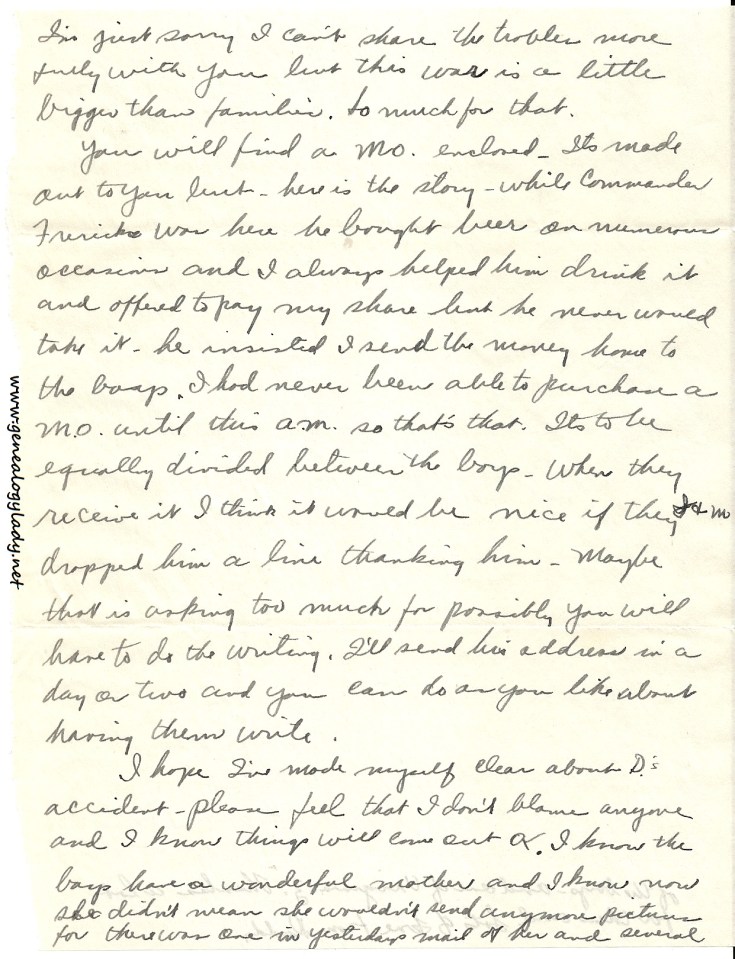 I'm just sorry I can't share the trobles more
fully with you but this war is a little
bigger than families. So much for that.
You will find a MO. enclosed - Its made
out to you but - here is the story - while Commander
Frericks was here he bought beer on numerous
occasions and I always helped him drink it
and offered to pay my share but he never would
take it - he insisted I send the money home to
the boys. I had never been able to purchase a
M.O. until this a.m. so that's that. Its to be
equally divided between the boys - When they
receive it I think it would be nice if they J & M
dropped him a line thanking him - Maybe
that is asking too much for possibly you will
have to do the writing. I'll send his address in a
day or two and you can do as you like about
having them write.
I hope I've made myself clear about D.'s
accident - please feel that I don't blame anyone
and I know things will come out OK. I know the
boys have a wonderful mother and I know now
she didn't mean she wouldn't send anymore pictures
for there was one in yesterdays mail of her and several
www.genealogylady.net